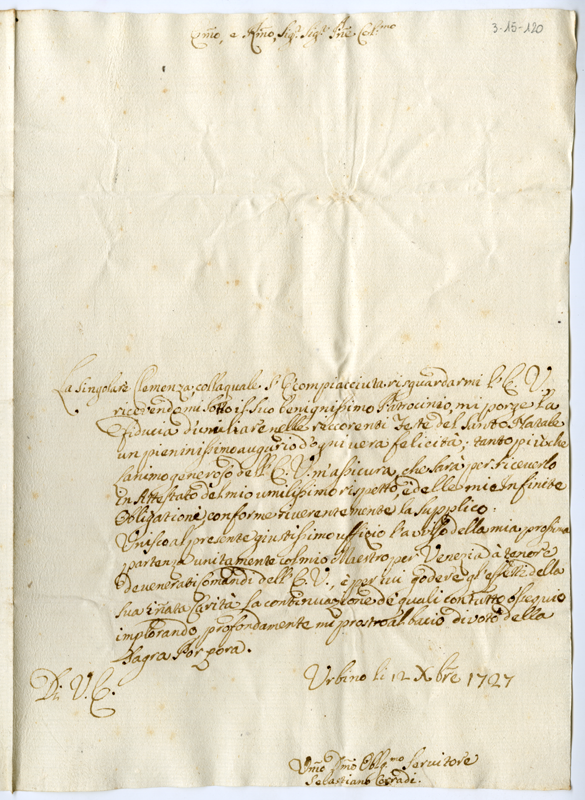 3-15-120
Emo, e Rmo, Sig.r Sig.r Pñe Col.mo
La singolare Clemenza, colla quale s'è compiacciuta risguardarmi l'E. V.
ricevendomi sotto il suo benignissimo Patrocinio, mi porge la
fiducia d'umiliare nelle riccorenti Feste del Santo Natale
un pienissimo augurio d'ogni vera felicità; tanto più che
l'animo generoso dell'E. V. m'assicura, che sarà per riceverlo
in Attestato del mio umilissimo rispetto, e delle mie Infinite
Obligationi, conforme riverentemente la supplico.
Unisco al presente giustissimo ufficio l'aviso della mia prossima
partenza unitamente col mio Maestro per Venezia à tenore
de venerati comandi dell'E. V., e per ivi godere gl'effetti della
sua innata Carità. La continuazione de quali con tutto ossequio
implorando, profondamente mi prostro al bacio divoto della
Sagra Porpora.
Di V. E.
Urbino li 12 Xbre 1727
Umo Dmo Oblig.mo Servitore
Sebastiano Corradi.